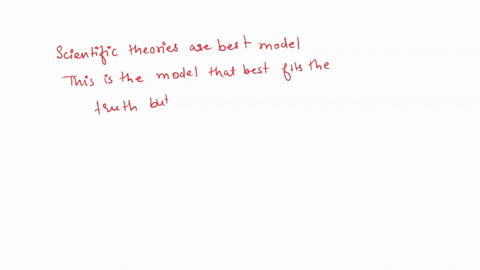 Scientific theories are best model
This is the model that best fits the
truth but